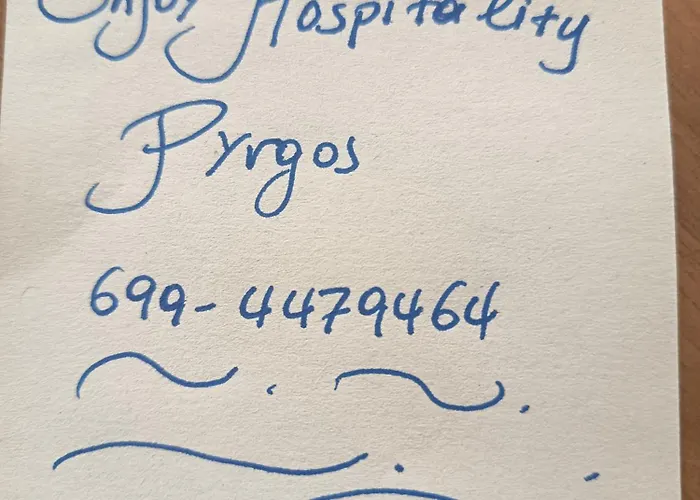 Enjoy Hospitality
Pyrgos
699-4479464